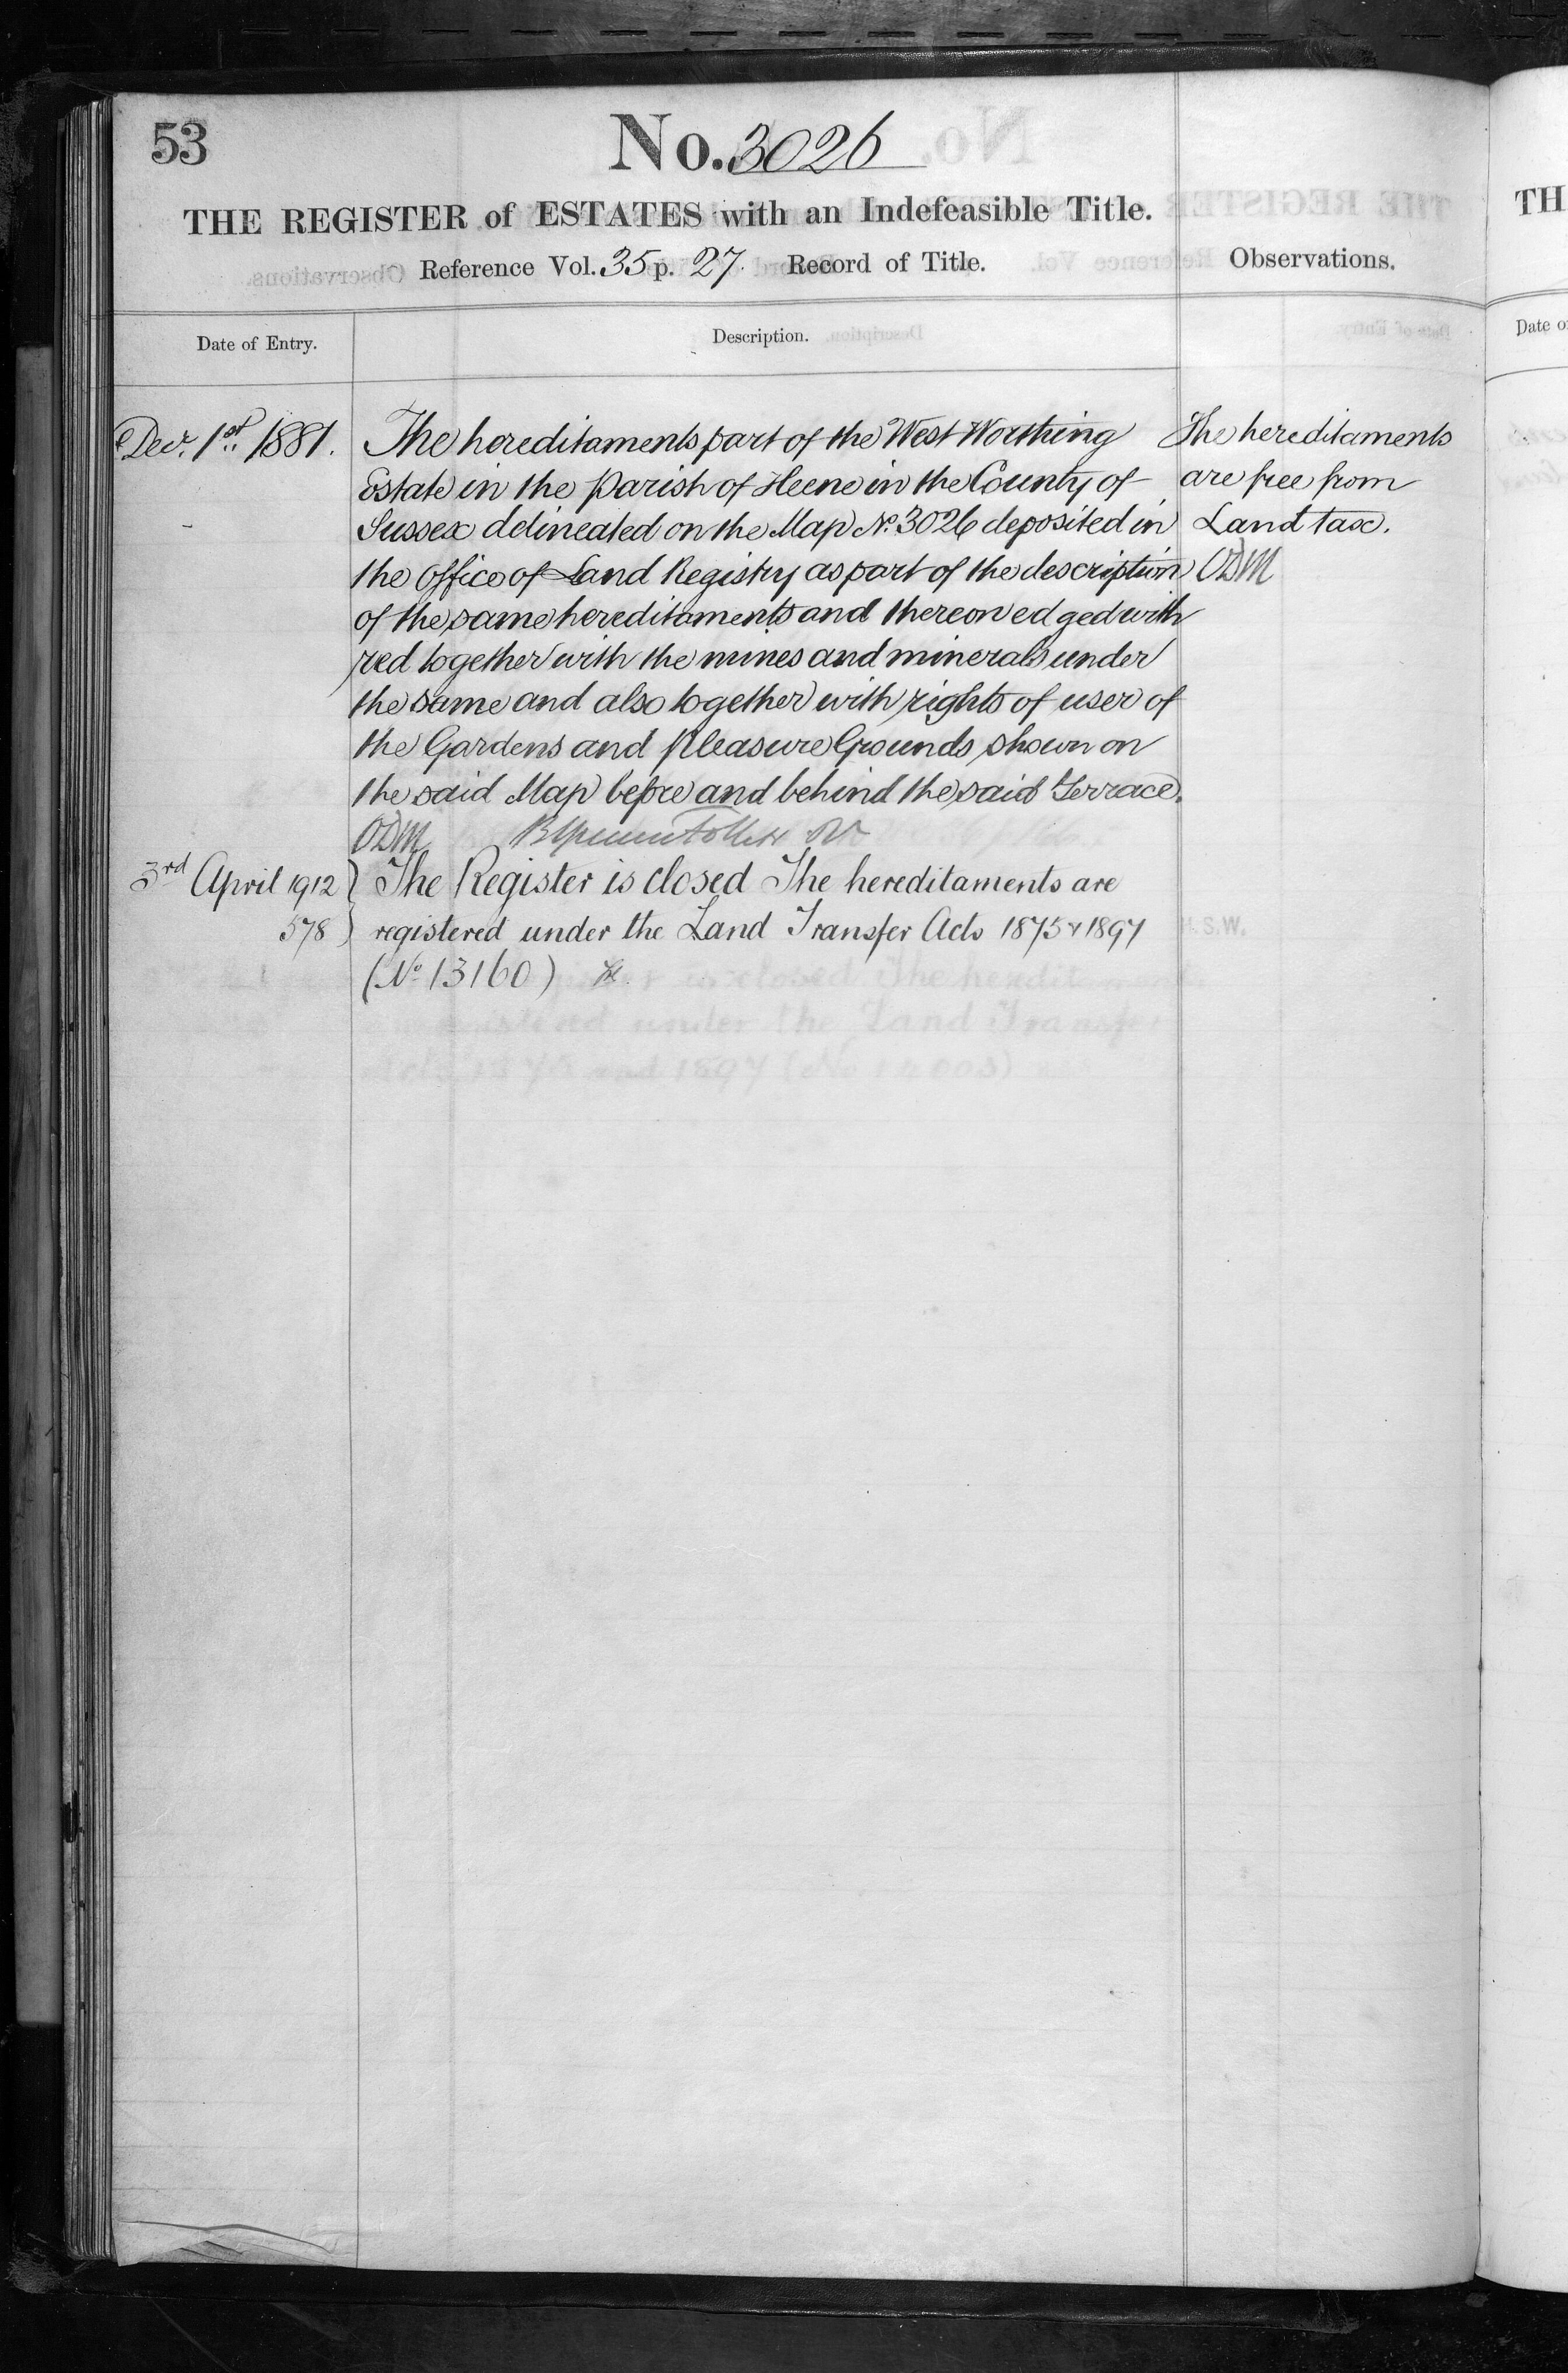 53
No. 3026
THE REGISTER of ESTATES with an Indefeasible Title.
Reference Vol. 35 p. 27. Record of Title.
Observations.
Date of Entry.
Description.
Decr. 1st. 1881.
The hereditaments part of the West Worthing
Estate in the Parish of Heene in the County of
Sussex delineated on the Map No. 3026 deposited in
the Office of Land Registry as part of the description
of the same hereditaments and thereon edged with
red together with the mines and minerals under
the same and also together with rights of user of
the Gardens and Pleasure Grounds shown on
the said Map before and behind the said Terrace.
ODM
The hereditaments
are free from
Land tax.
ODM
3rd April 1912
578
The Register is closed The hereditaments are
registered under the Land Transfer Acts 1875 & 1897
(No 13160)
TH
Date o